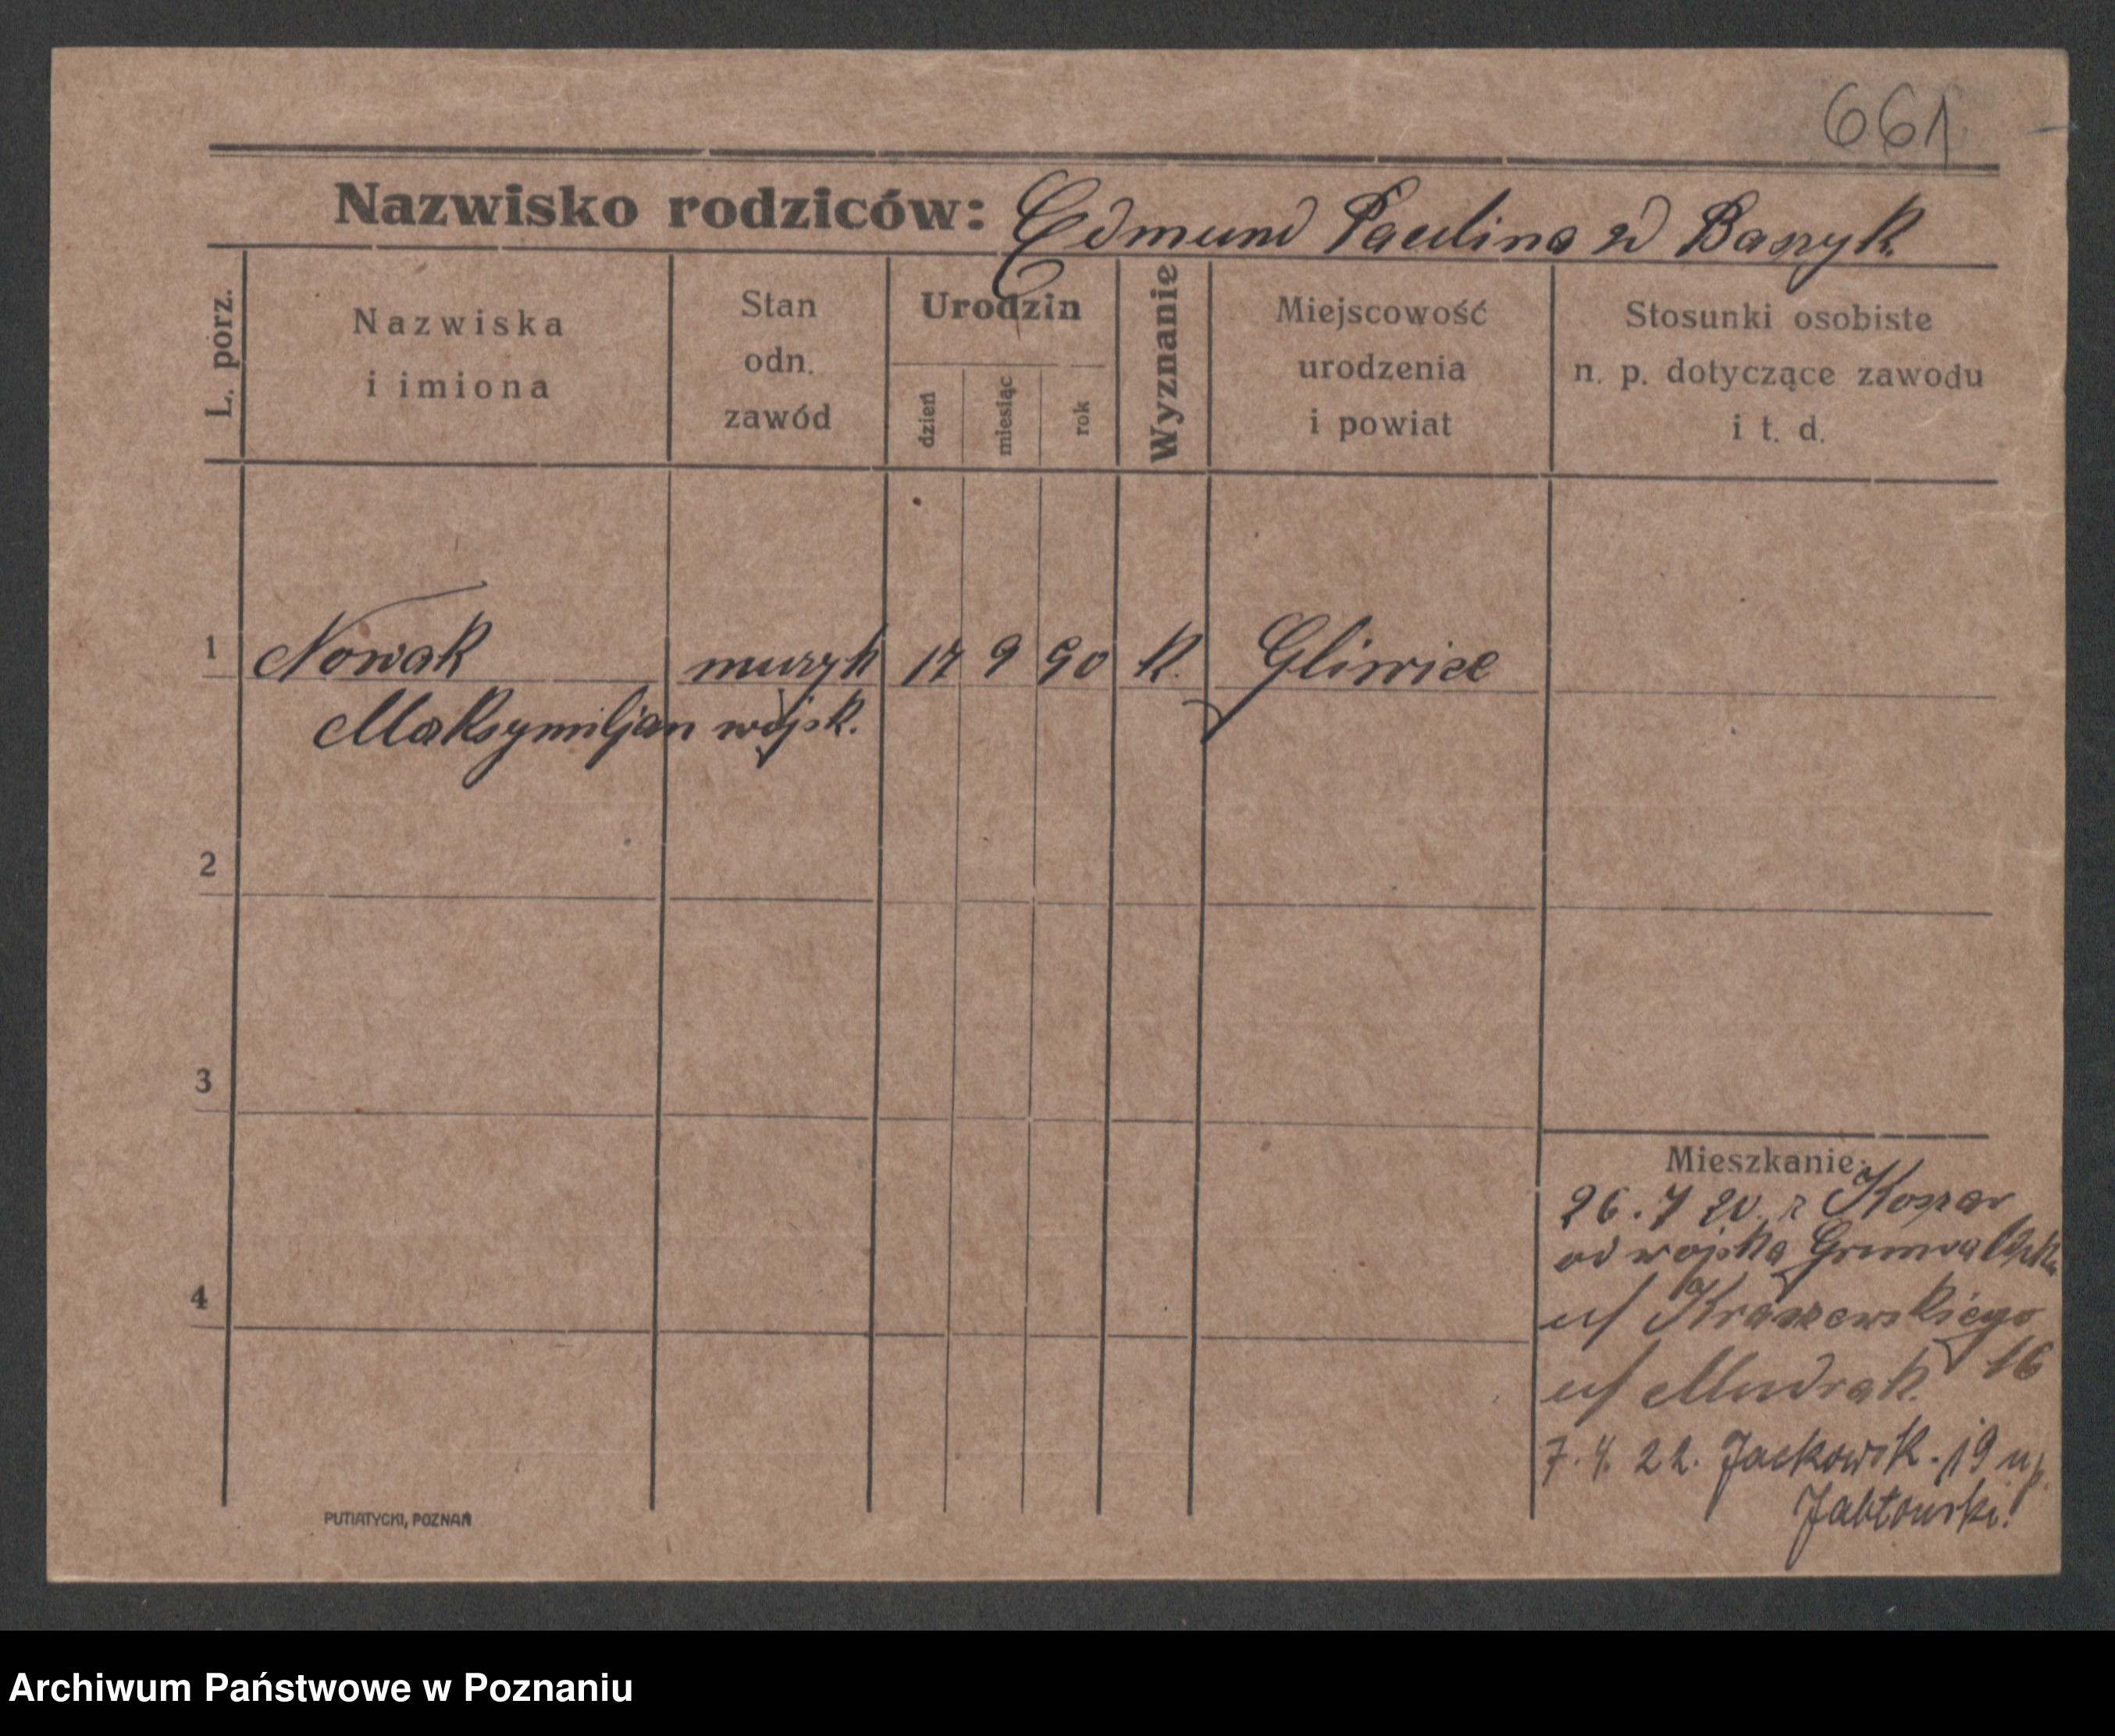 661
Nazwisko rodziców: Edmund Paulina z d Baszyk
L. porz.
Nazwiska
i imiona
Stan
odn.
zawód
Urodzin
dzień
miesiąc
rok
Wyznanie
Miejscowość
urodzenia
i powiat
Stosunki osobiste
n. p. dotyczące zawodu
i t. d.
1 Nowak muzyk 17 9 90 k. Gliwice
Maksymiljan wojsk.
2
3
4
Mieszkanie:
26. 7 20. z Koszar
od wojska Grunwaldzka
u/ Kraszewskiego
16
u/ Mudrak.
7. 4. 22. Jackowsk. 19 u p.
Jabłonski.
PUTIATYCKI, POZNAŃ
Archiwum Państwowe w Poznaniu